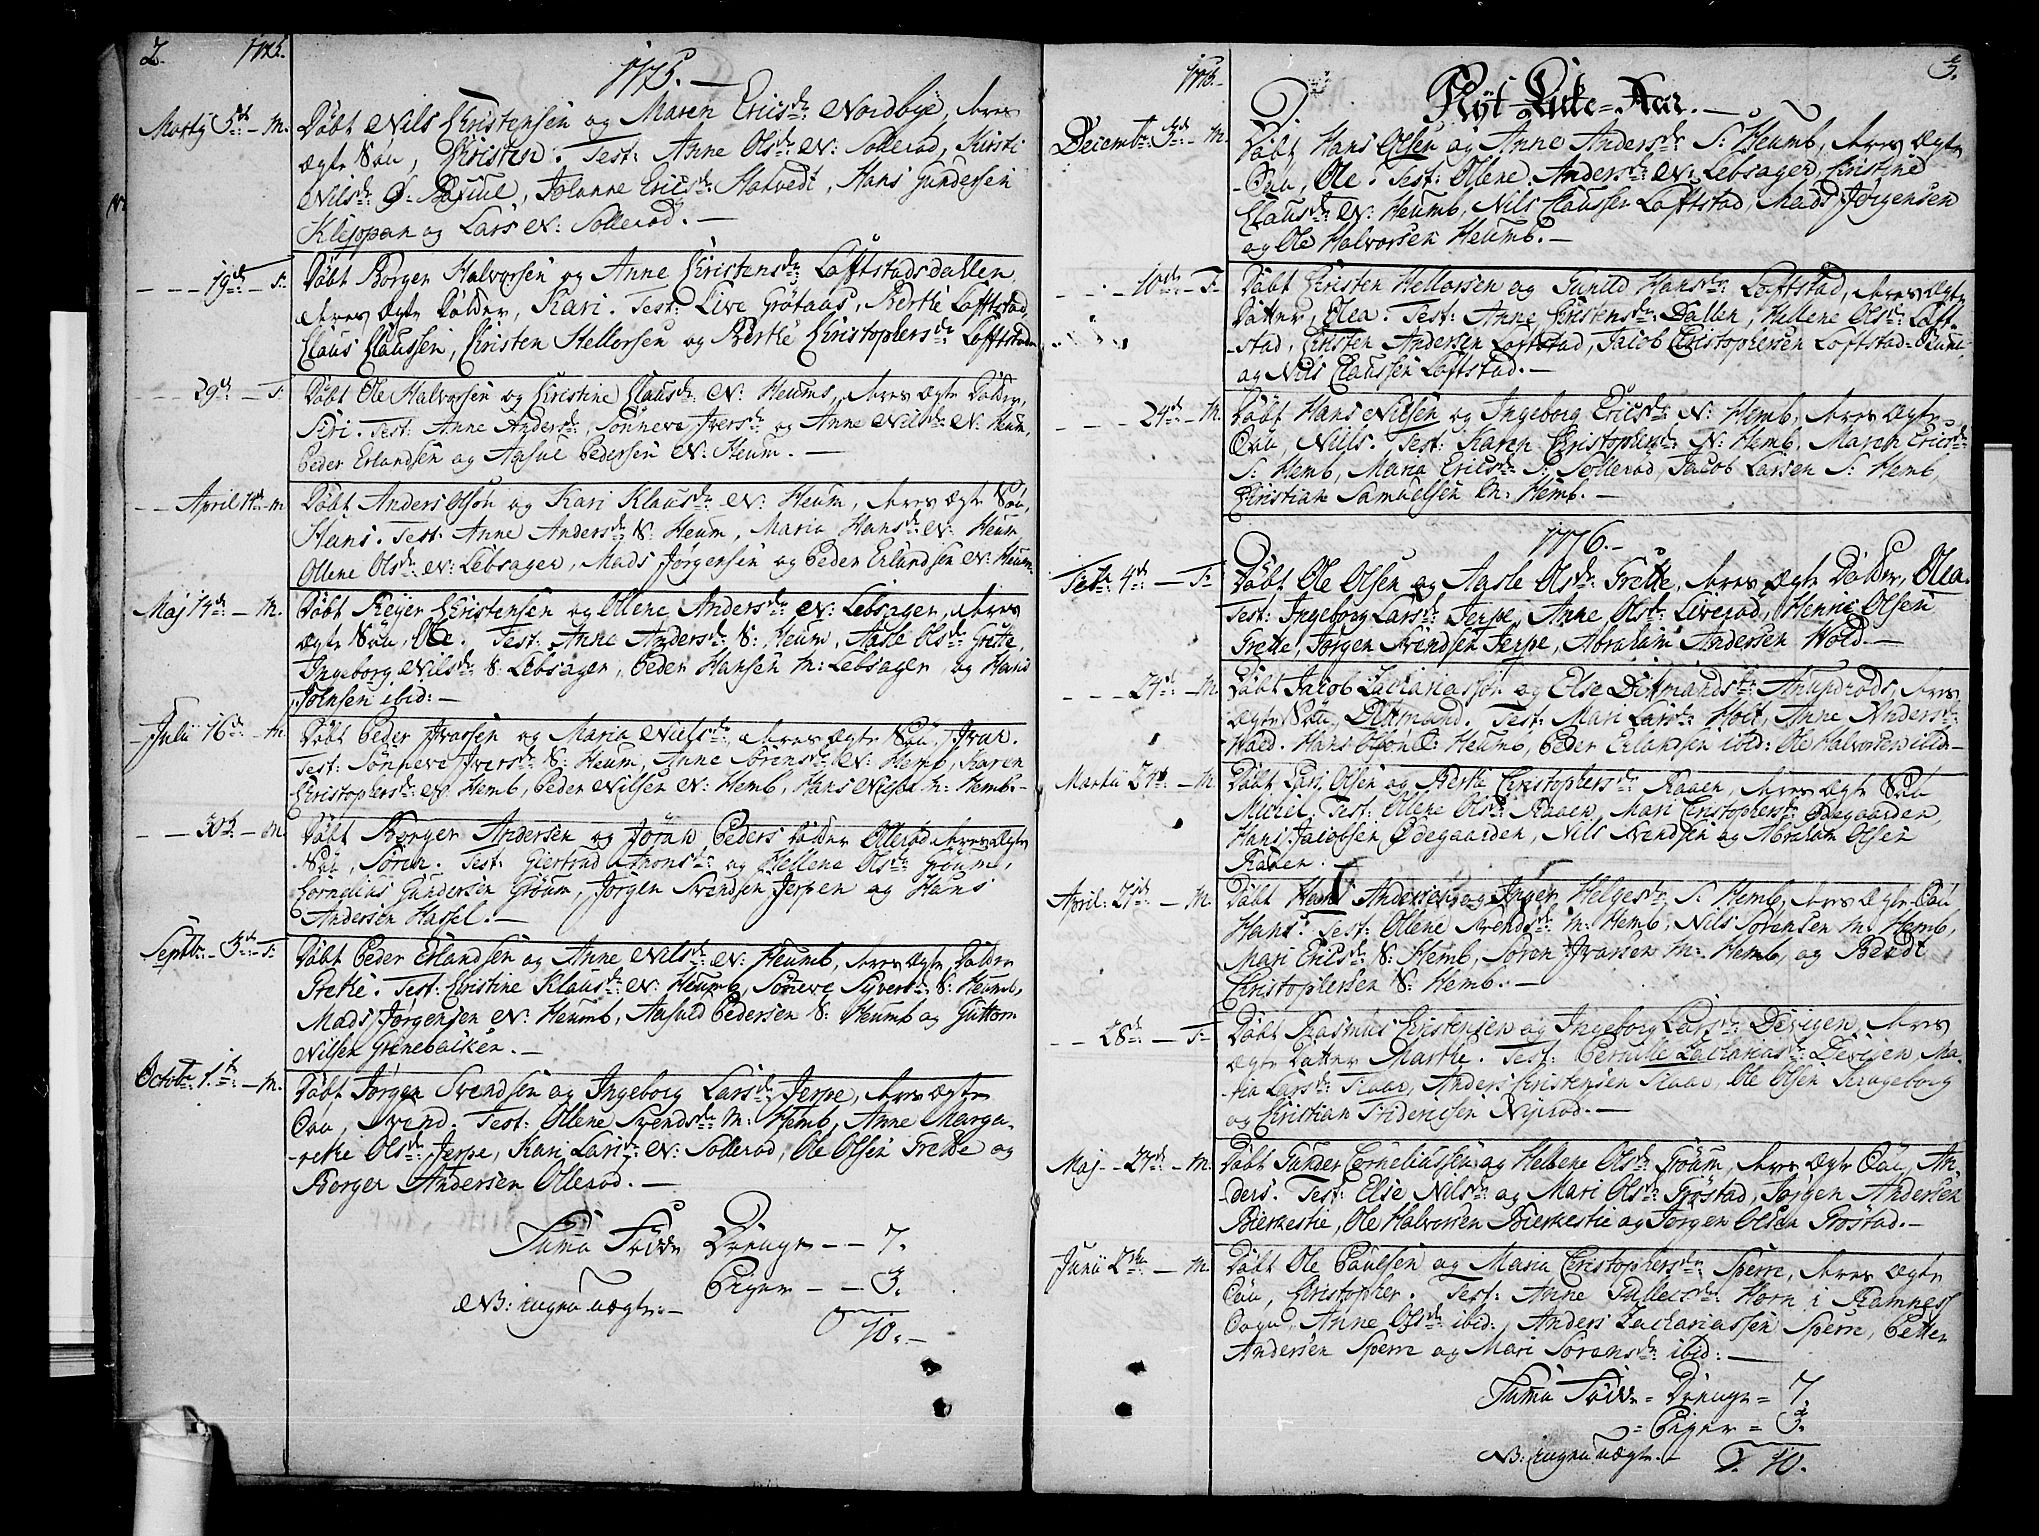 2. 1775.
1775. —
Martij 5te — M. Döbt Nils Christensen og Maren Ericsdr Nordbye, deres
ægte Sön, Christen. Test: Anne Olsdr N: Sollerod, Kirsti
Nilsdr Johanne Ericsdr: Hatvedt, Hans Gundersen
Klejopan og Lars N: Sollerod. —
— — — 19de — F. Döbt Borger Halvorsen og Anne Christensdr Loftstadsdallen
deres ægte Dotter, Kari. Test: Live Grötaas, Berthe Loftstad,
Claus Claussen, Christen Hellorsen og Berthe Christophersdr Loftstad
— — — 29de — F. Döbt Ole Halvorsen og Christine Clausdr N: Heums, deres ægte Dotter,
Siri. Test: Anne Andersdr, Sönneve Iversdr og Anne Nilsdr N: Heum,
Peder Erlandsen og Aasul Pedersen N: Heum. —
— — April 14de — M Döbt Anders Olsön og Kari Klausdr N: Heum, deres ægte Sön,
Hans. Test: Anne Andersdr S: Heum, Maria Hansdr N: Heum
Ollene Olsdr N: Lebsager, Mads Jörgensen og Peder Erlandsen N: Heum.
Maj 14de — M. Döbt Reyer Christensen og Ollene Andersdr N: Lebsager, deres
ægte Sön, Ole. Test: Anne Andersdr S: Heum, Aasle Olsdr Grette,
Ingeborg Nilsdr S: Lebsager, Peder Hansen M: Lebsager og Hans
Johnsen ibid: —
— Julii 16de — M. Döbt Peder Ivarsen og Maria Nielsdr, deres ægte Sön, Ivar.
Test: Sönneve Iversdr S: Heum, Anne Sörensdr N: Hemb, Karen
Christophersdr N: Hemb, Peder Nilsen N: Hemb, Hans Nilsen M: Hemb. —
— — 30te — M. Döbt Borger Andersen og Jöran Peders Dotter Ollerod deres ægte
Sön, Sören. Test: Giertrud Aronsdr og Hellene Olsdr Gröum,
Cornelius Gundersen Gröum, Jörgen Svendsen Jerpen og Hans
Andersen Hassel. —
Septbr — 3de — F. Döbt Peder Erlandsen og Anne Nilsdr N: Heumb, deres ægte Dotter
Grethe. Test: Christine Klausdr N: Heumb, Sönneve Syversdr S: Heumb,
Mads Jörgensen N: Heumb, Aasuld Pedersen S: Heumb og Guttorm
Nilsen Grinebacken. —
Octobr 1te — M. Döbt Jörgen Svendsen og Ingeborg Larsdr Jerpe, deres ægte
Sön, Svend. Test: Ollene Svendsdr M: Hemb, Anne Marga-
-rethe Olsdr Jerpe, Kari Larsdr N: Sollerod, Ole Olsen Grette og
Borger Andersen Ollerod. —
Suma Födde Drenge — — 7.
Piger — — 3.
NB: ingen uægte. — 10. —
1775. 3.
Nyt Kirke = Aar. —
Decembr 3de — M. Döbt Hans Olsen og Anne Andersdr S: Heumb, deres ægte
Sön, Ole. Test: Ollene Andersdr N: Lebsager, Christine
Clausdr N: Heumb, Nils Claussen Loftstad, Mads Jörgensen
og Ole Halvorsen Heumb. —
— — — 10de — F. Döbt Christen Hellorsen og Gunild Hansdr Loftstad, deres ægte
Datter, Olea. Test: Anne Christensdr Dallen, Hellene Olsdr Loft-
-stad, Christen Andersen Loftstad, Jacob Christophersen Loftstad-
og Nils Claussen Loftstad. —
— — — 24de — M. Döbt Hans Nilsen og Ingeborg Ericsdr N: Hemb, deres ægte
Sön, Niels. Test: Karen Christophersdr N: Hemb, Maren Ericsdr
S: Hemb, Maria Ericsdr S: Sollerod, Jacob Larsen S: Hemb,
Christian Samuelsen M: Hemb. —
1776. —
Febr: 4de — F. Döbt Ole Olsen og Aasle Olsdr Grette, deres ægte Dotter, Olea.
Test: Ingeborg Larsdr Jerpe, Anne Olsdr Liverod, Henric Olsen
Grette, Jörgen Svendsen Jerpe, Abraham Andersen Hold. —
— — — 24de — M. Döbt Jacob Zachariassön og Else Ditmandsdr Anundrods, deres
ægte Sön, Ditmand. Test: Mari Larsdr Holt, Anne Andersdr
Hoed. Hans Olsön Heumb, Peder Erlandsen ibid: Ole Halvorsen ibid. —
Martii 24de — M. Döbt Lars Olsen og Berthe Christophersdr Raaen, deres ægte Sön
Michel. Test: Ollene Olsdr Raaen, Mari Christophersdr Ödegaarden,
Hans Jacobsen Ödegaarden, Nils Svendsen og Abraham Olsen
Raaen.
April: 21de — M. Döbt Hans Andersen og Inger Helgesdr S: Hemb, deres ægte Sön
Hans. Test: Ollene Svendsdr M: Hemb, Nils Sörensen M: Hemb,
Mari Ericsdr S: Hemb, Sören Ivarsen M: Hemb, og Bendt
Christophersen S: Hemb. —
— — 28de — F. Döbt Rasmus Christensen og Ingeborg Larsdr Devigen, deres
ægte Datter Marthe. Test: Pernille Zachariasdr Devigen, Ma-
-ria Larsdr Skaar, Anders Christensen Skaar, Ole Olsen
og Christian Fridericsen Nyerod. —
Maj — 27de — M. Döbt Gunder Corneliussen og Hellene Olsdr Gröum, deres ægte Sön, An-
-ders. Test: Else Nilsdr og Mari Olsdr Gröstad, Jörgen Andersen
Bierkestie, Ole Halvorsen Bierkestie og Jörgen Olsen Gröstad. —
Junii 2den — M. Döbt Ole Paulsen og Maria Christophersdr Sperre, deres ægte
Sön, Christopher. Test: Anne Pallesdr Horn i Ramnes
Sogn, Anne Olsdr ibid:, Anders Zachariassen Sperre, Petter
Andersen Sperre og Mari Sörensdr ibid: —
Suma Födde = Drenge = 7.
= Piger = 3.
NB: ingen uægte. — S. 10.